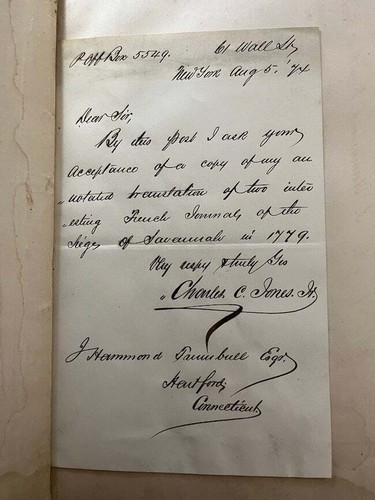 P. Off Box 5549.
61 Wall St,
New York Aug 5. '74
Dear Sir,
By this post I ask your
acceptance of a copy of my an
"notated translation of two inter
"esting French Journals of the
Siege of Savannah in 1779.
Very respy & truly Yrs
Charles C. Jones, Jr.
J Hammond Trumbull Esqr.
Hartford,
Connecticut